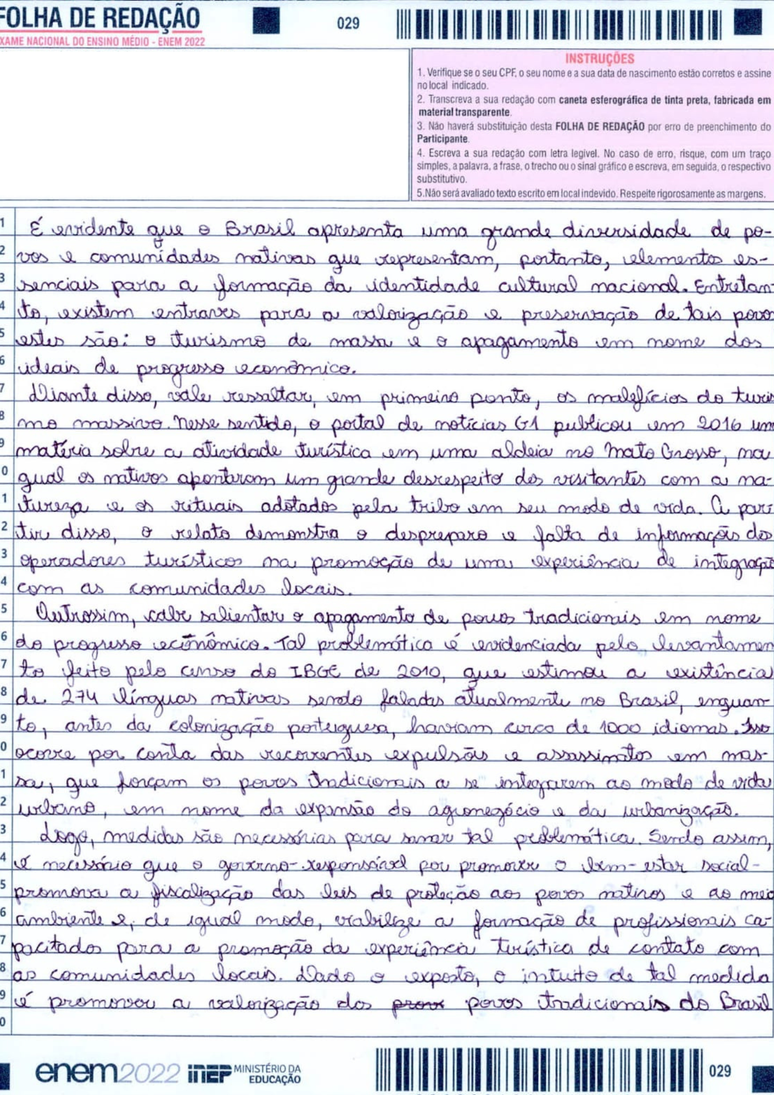 FOLHA DE REDAÇÃO
EXAME NACIONAL DO ENSINO MÉDIO - ENEM 2022
029
INSTRUÇÕES
1. Verifique se o seu CPF, o seu nome e a sua data de nascimento estão corretos e assine
no local indicado.
2. Transcreva a sua redação com caneta esferográfica de tinta preta, fabricada em
material transparente.
3. Não haverá substituição desta FOLHA DE REDAÇÃO por erro de preenchimento do
Participante.
4. Escreva a sua redação com letra legível. No caso de erro, risque, com um traço
simples, a palavra, a frase, o trecho ou o sinal gráfico e escreva, em seguida, o respectivo
substitutivo.
5.Não será avaliado texto escrito em local indevido. Respeite rigorosamente as margens.
1 É evidente que o Brasil apresenta uma grande diversidade de po-
2 vos e comunidades nativas que representam, portanto, elementos es-
3 senciais para a formação da identidade cultural nacional. Entretan
4 to, existem entraves para a valorização e preservação de tais povo
5 estes são: o turismo de massa e o apagamento em nome dos
6 ideais de progresso econômico.
7 Diante disso, vale ressaltar, em primeiro ponto, os malefícios do turis
8 mo massivo. Nesse sentido, o portal de notícias G1 publicou em 2016 um
9 matéria sobre a atividade turística em uma aldeia no Mato Grosso, na
0 qual os nativos apontaram um grande desrespeito dos visitantes com a na-
1 tureza e os rituais adotados pela tribo em seu modo de vida. A par
2 tir disso, o relato demonstra o despreparo e falta de informação dos
3 operadores turísticos na promoção de uma experiência de integração
4 com as comunidades locais.
5 Outrossim, cabe salientar o apagamento de povos tradicionais em nome
6 do progresso econômico. Tal problemática é evidenciada pelo levantamen
7 to feito pelo censo do IBGE de 2010, que estimou a existência
8 de 274 línguas nativas sendo faladas atualmente no Brasil, enquan
9 to, antes da colonização portuguesa, haviam cerca de 1000 idiomas. Isso
0 ocorre por conta das recorrentes expulsões e assassinatos em mas-
1 sa, que forçam os povos tradicionais a se integrarem ao modo de vida
2 urbano, em nome da expansão do agronegócio e da urbanização.
3 Logo, medidas são necessárias para sanar tal problemática. Sendo assim,
4 é necessário que o governo-responsável por promover o bem-estar social-
5 promova a fiscalização das leis de proteção aos povos nativos e ao meio
6 ambiente e, de igual modo, viabilize a formação de profissionais ca-
7 pacitados para a promoção da experiência turística de contato com
8 as comunidades locais. Dado o exposto, o intuito de tal medida
9 é promover a valorização dos povos tradicionais do Brasil
0
enem2022 inep MINISTÉRIO DA
EDUCAÇÃO
029